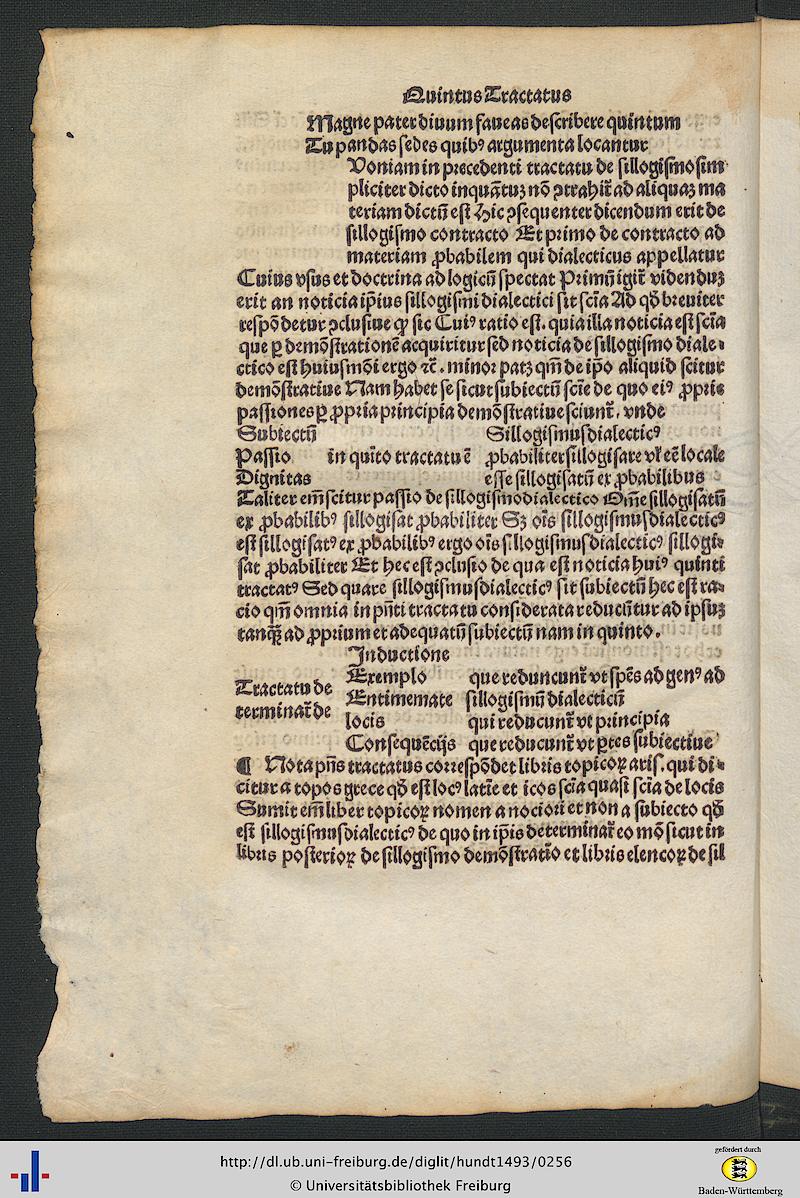 Quintus Tractatus
Magne pater diuum faueas describere quintum
Tu pandas sedes quibꝰ argumenta locantur
Uoniam in precedenti tractatu de sillogismo sim
pliciter dicto inquātuꝫ nō ꝯtrahit̄ ad aliquaꝫ ma
teriam dictū est Hic ꝯsequenter dicendum erit de
sillogismo contracto Et primo de contracto ad
materiam ꝓbabilem qui dialecticus appellatur
Cuius vsus et doctrina ad logicū spectat Primū igit̄ videnduꝫ
erit an noticia ip̄ius sillogismi dialectici sit scīa Ad qđ breuiter
respōdetur ꝯclusiue ꝙ sic Cuiꝰ ratio est. quia illa noticia est scīa
que ꝑ demōstrationē acquiritur sed noticia de sillogismo diale⸗
ctico est huiusmōi ergo ⁊c̄. minor patꝫ qm̄ de ip̄o aliquid scitur
demōstratiue Nam habet se sicut subiectū scīe de quo eiꝰ ꝓprie
passiones ꝑ ꝓpria principia demōstratiue sciunt̄. vnde
Subiectū Sillogismus dialecticꝰ
Passio in quīto tractatu ē ꝓbabiliter sillogisare vl̓ eē locale
Dignitas esse sillogisatū ex ꝓbabilibus
Taliter em̄ scitur passio de sillogismo dialectico Om̄e sillogisatū
ex ꝓbabilibꝰ sillogisat ꝓbabiliter Sꝫ oīs sillogismus dialecticꝰ
est sillogisatꝰ ex ꝓbabilibꝰ ergo oīs sillogismus dialecticꝰ sillogi⸗
sat ꝓbabiliter Et hec est ꝯclusio de qua est noticia huiꝰ quinti
tractatꝰ Sed quare sillogismus dialecticꝰ sit subiectū hec est ra⸗
cio qm̄ omnia in pn̄ti tractatu considerata reducūtur ad ipsuꝫ
tanqꝫ̄ ad ꝓprium et adequatū subiectū nam in quinto.
Inductione
Tractatu de
terminat̄ de
Exemplo que reduncunt̄ vt spēs ad genꝰ ad
Entimemate sillogismū dialecticū
locis qui reducunt̄ vt principia
Consequēcijs que reducunt̄ vt ꝑtes subiectiue
¶ Nota pn̄s tractatus correspōdet libris topicoꝝ aris. qui di⸗
citur a topos grece qđ est locꝰ latīe et icos scīa quasi scīa de locis
Sumit em̄ liber topicoꝝ nomen a nociori et non a subiecto qđ
est sillogismus dialecticꝰ de quo in ip̄is determinat̄ eo mō sicut in
libris posterioꝝ de sillogismo demōstratīo et libris elencoꝝ de sil
http://dl.ub.uni-freiburg.de/diglit/hundt1493/0256
© Universitätsbibliothek Freiburg
gefördert durch
Baden-Württemberg